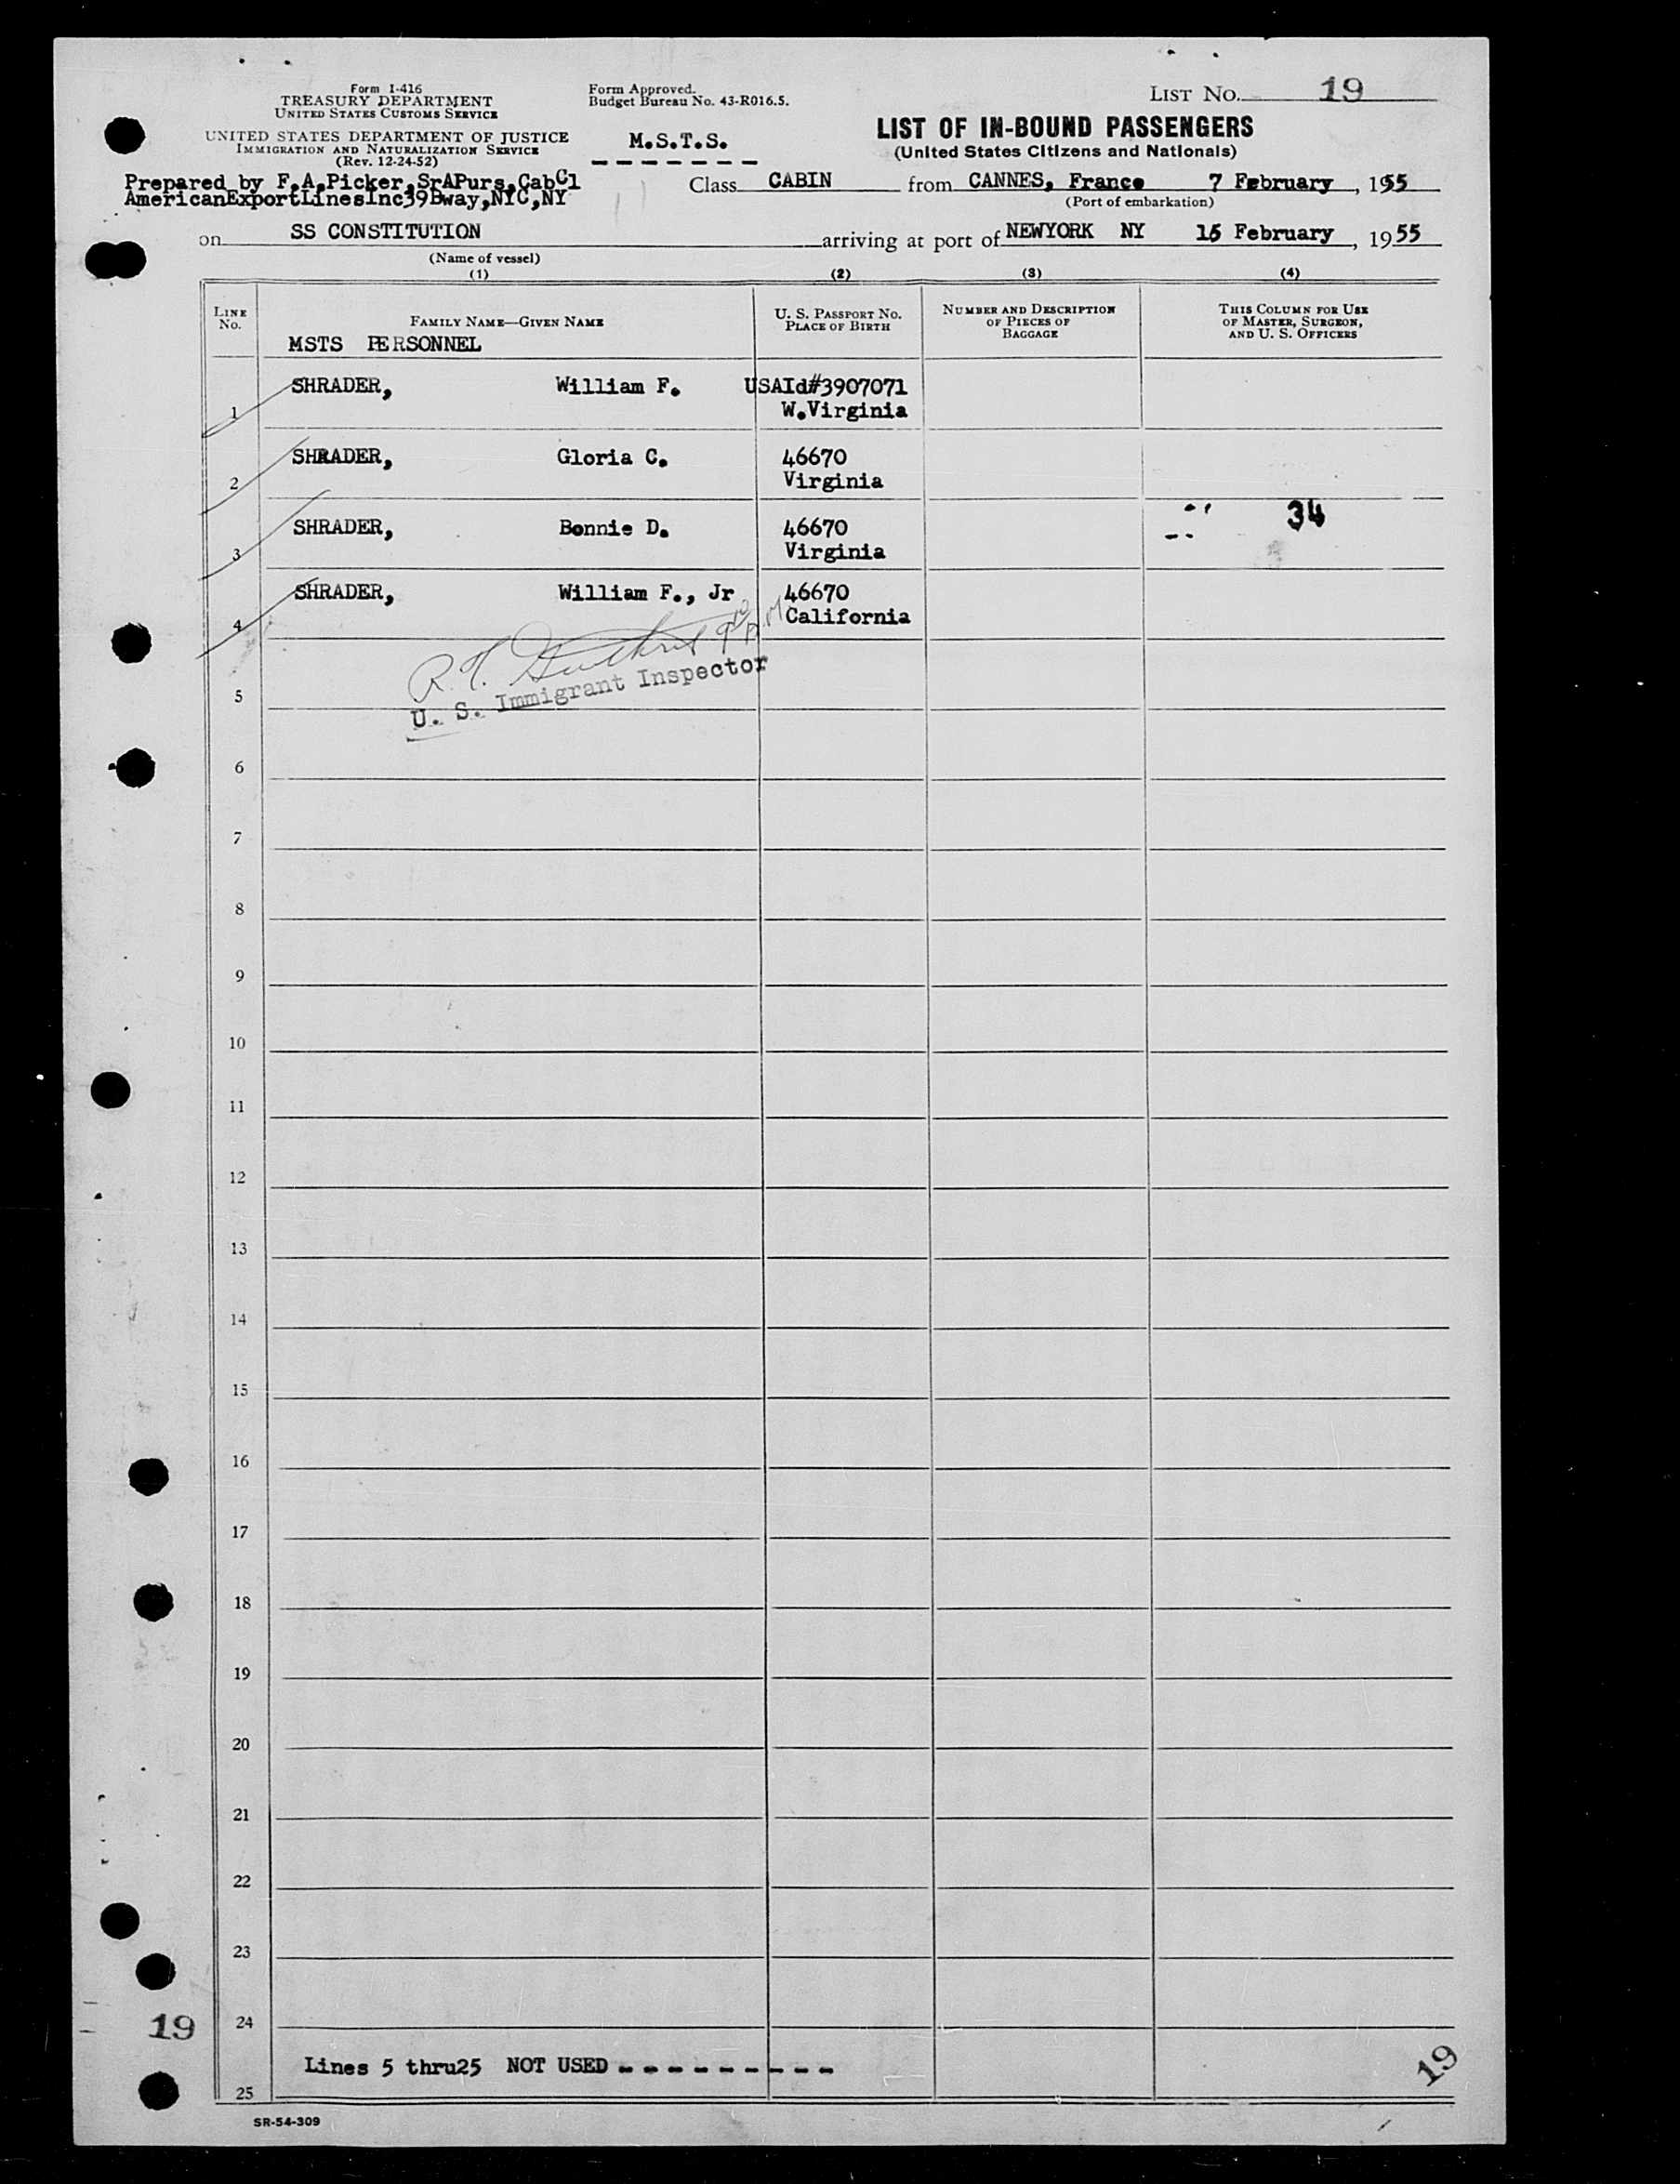 Form I-416
TREASURY DEPARTMENT
UNITED STATES CUSTOMS SERVICE
UNITED STATES DEPARTMENT OF JUSTICE
IMMIGRATION AND NATURALIZATION SERVICE
(Rev. 12-24-52)
Form Approved.
Budget Bureau No. 43-R016.5.
M.S.T.S.
LIST NO. 19
LIST OF IN-BOUND PASSENGERS
(United States Citizens and Nationals)
Prepared by F.A.Picker,SrAPurs,CabCl
AmericanExportLinesInc39Bway,NYC,NY
Class CABIN from CANNES, France 7 February, 1955
(Port of embarkation)
on SS CONSTITUTION arriving at port of NEWYORK NY 15 February, 1955
(Name of vessel)
(1) (2) (3) (4)
LINE NO.
FAMILY NAME—GIVEN NAME
U. S. PASSPORT NO.
PLACE OF BIRTH
NUMBER AND DESCRIPTION
OF PIECES OF
BAGGAGE
THIS COLUMN FOR USE
OF MASTER, SURGEON,
AND U. S. OFFICERS
MSTS PERSONNEL
1 SHRADER, William F. USAId#3907071
W.Virginia
2 SHRADER, Gloria C. 46670
Virginia
34
3 SHRADER, Bonnie D. 46670
Virginia
4 SHRADER, William F., Jr 46670
California
U. S. Immigrant Inspector
5
6
7
8
9
10
11
12
13
14
15
16
17
18
19
20
21
22
23
24
19
Lines 5 thru25 NOT USED - - - - - - - - -
25
19
SR-54-309